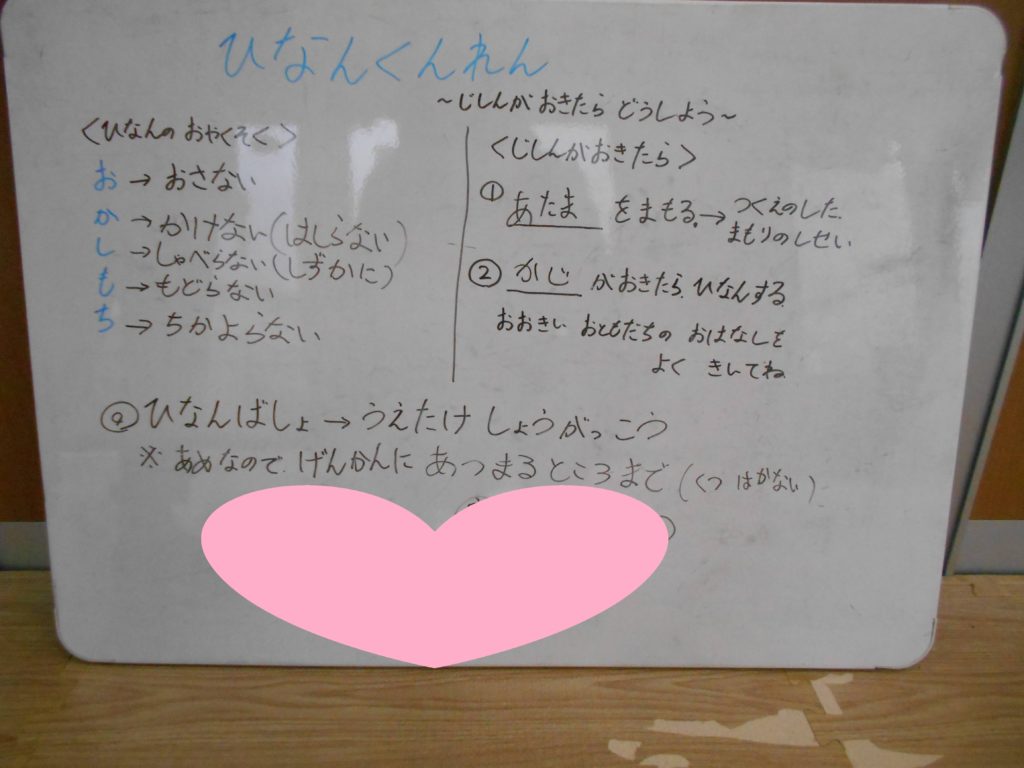 ひなんくんれん
～じしんが おきたら どうしよう～
〈ひなんの おやくそく〉
お → おさない
か → かけない(はしらない)
し → しゃべらない(しずかに)
も → もどらない
ち → ちかよらない
〈じしんがおきたら〉
① あたま をまもる。→ つくえのした。
まもりのしせい
② かじ がおきたら、ひなんする
おおきい おともだちの おはなしを
よく きいてね
ひなんばしょ → うえたけ しょうがっこう
※ あめなので、げんかんに あつまるところまで (くつ はかない)